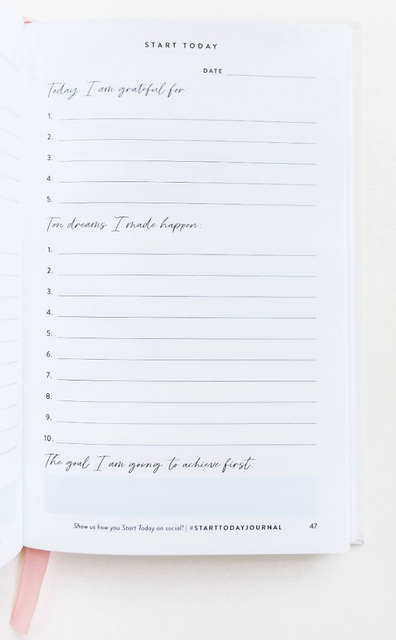 START TODAY
DATE
Today I am grateful for
1.
2.
3.
4.
5.
Ten dreams I made happen:
1.
2.
3.
4.
5.
6.
7.
8.
9.
10.
The goal I am going to achieve first:
Show us how you Start Today on social! | #STARTTODAYJOURNAL 47